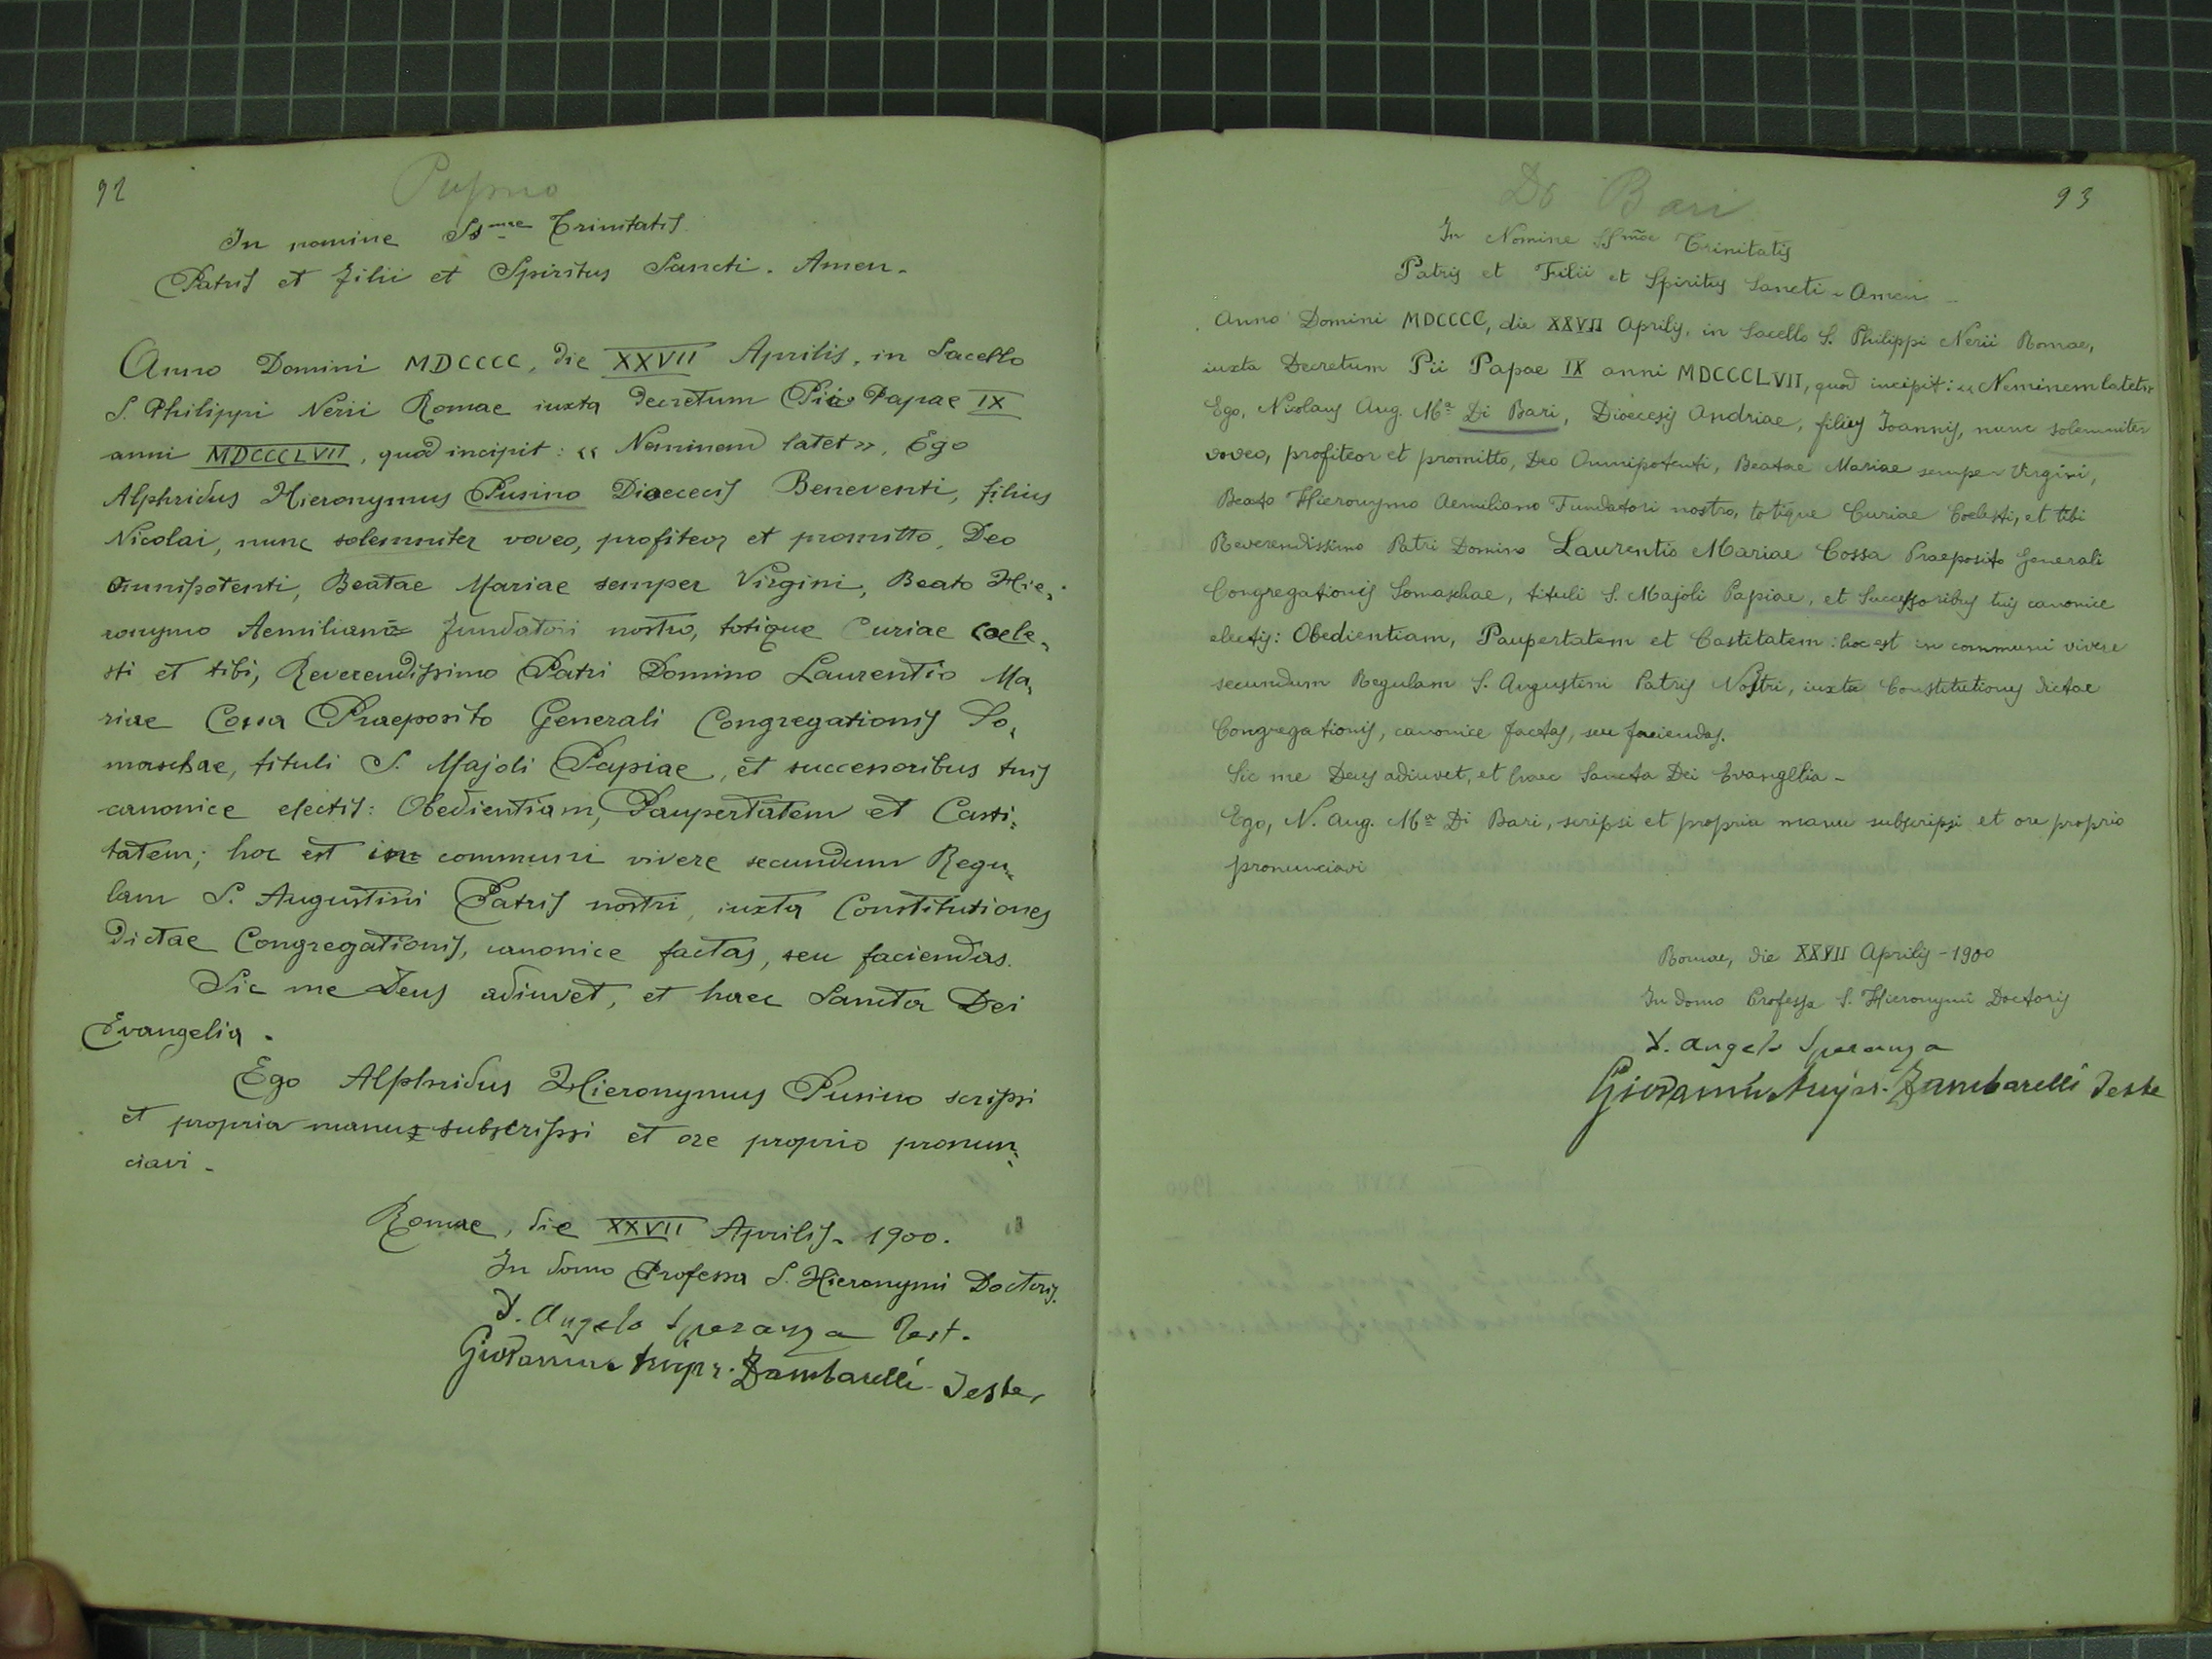 92
Pusino
In nomine SSmae Trinitatis
Patris et Filii et Spiritus Sancti. Amen.
Anno Domini MDCCCC, die XXVII Aprilis, in Sacello
S. Philippi Nerii Romae iuxta decretum Pii Papae IX
anni MDCCCLVII, quod incipit: « Neminem latet», Ego
Alphridus Hieronymus Pusino Dioececis Beneventi, filius
Nicolai, nunc solemniter voveo, profiteor et promitto, Deo
Omnipotenti, Beatae Mariae semper Virgini, Beato Hie-
ronymo Aemiliano Fundatori nostro, totique Curiae Coele-
sti et tibi, Reverendissimo Patri Domino Laurentio Ma-
riae Cossa Praeposito Generali Congregationis So-
maschae, tituli S. Majoli Papiae, et successoribus tuis
canonice electis: Obedientiam, Paupertatem et Casti-
tatem; hoc est in communi vivere secundum Regu-
lam S. Augustini Patris nostri, iuxta Constitutiones
dictae Congregationis, canonice factas, seu faciendas.
Sic me Deus adiuvet, et haec Sancta Dei
Evangelia.
Ego Alphridus Hieronymus Pusino scripsi
et propria manu subscripsi et ore proprio pronun-
ciavi.
Romae, die XXVII Aprilis. 1900.
In domo Professa S. Hieronymi Doctoris.
D. Angelo Speranza Test.
Giovanni Zambarelli Teste
93
Di Bari
In Nomine SSmae Trinitatis
Patris et Filii et Spiritus Sancti - Amen -
Anno Domini MDCCCC, die XXVII Aprilis, in Sacello S. Philippi Nerii Romae,
iuxta Decretum Pii Papae IX anni MDCCCLVII, quod incipit: « Neminem latet»
Ego, Nicolaus Aug. Ma Di Bari, Dioecesis Andriae, filius Joannis, nunc solemniter
voveo, profiteor et promitto, Deo Omnipotenti, Beatae Mariae semper Virgini,
Beato Hieronymo Aemiliano Fundatori nostro, totique Curiae Coelesti, et tibi
Reverendissimo Patri Domino Laurentio Mariae Cossa Praeposito Generali
Congregationis Somaschae, tituli S. Majoli Papiae, et Successoribus tuis canonice
electis: Obedientiam, Paupertatem et Castitatem: hoc est in communi vivere
secundum Regulam S. Augustini Patris Nostri, iuxta Constitutiones dictae
Congregationis, canonice factas, seu faciendas.
Sic me Deus adiuvet, et haec Sancta Dei Evangelia -
Ego, N. Aug. Ma Di Bari, scripsi et propria manu subscripsi et ore proprio
pronunciavi
Romae, die XXVII Aprilis - 1900
In domo Professa S. Hieronymi Doctoris
D. Angelo Speranza
Giovanni Zambarelli Teste